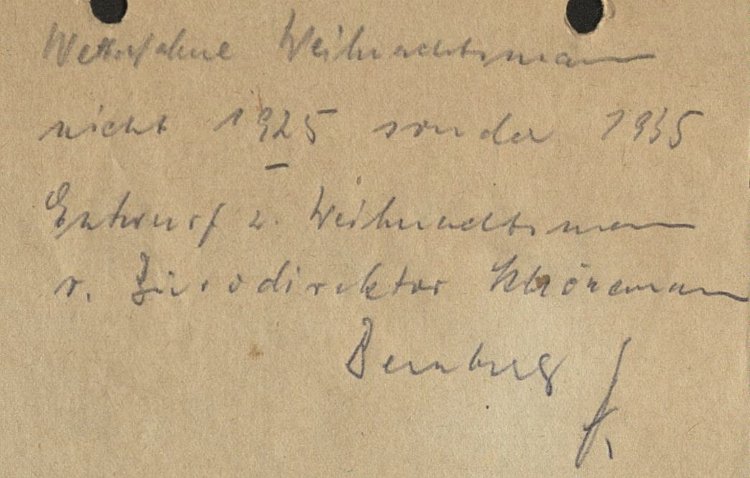 Wetterfahne Weihnachtsmann
nicht 1925 sonder 1935
Entwurf z. Weihnachtsmann
v. Bürodirektor Schönemann
Bernburg